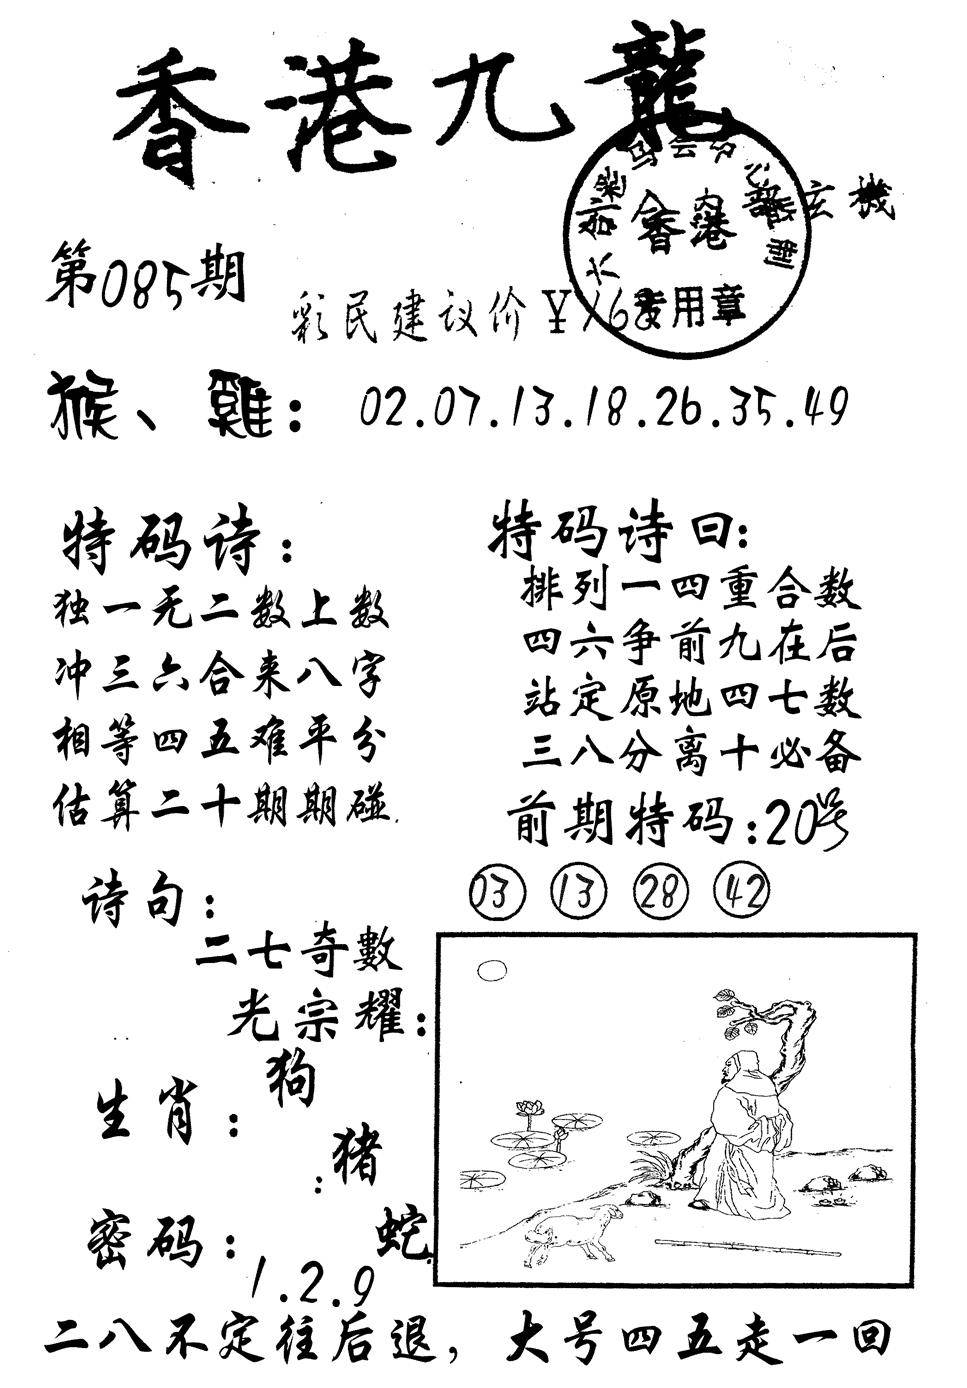 香港九龍
玄機
香港
专用章
第085期
彩民建议价￥168
猴、雞：02.07.13.18.26.35.49
特码诗：
独一无二数上数
冲三六合来八字
相等四五难平分
估算二十期期碰
特码诗曰：
排列一四重合数
四六争前九在后
站定原地四七数
三八分离十必备
前期特码：20号
03 13 28 42
诗句：
二七奇數
光宗耀：
生肖：
狗
猪
蛇
密码：
1.2.9
二八不定往后退，大号四五走一回